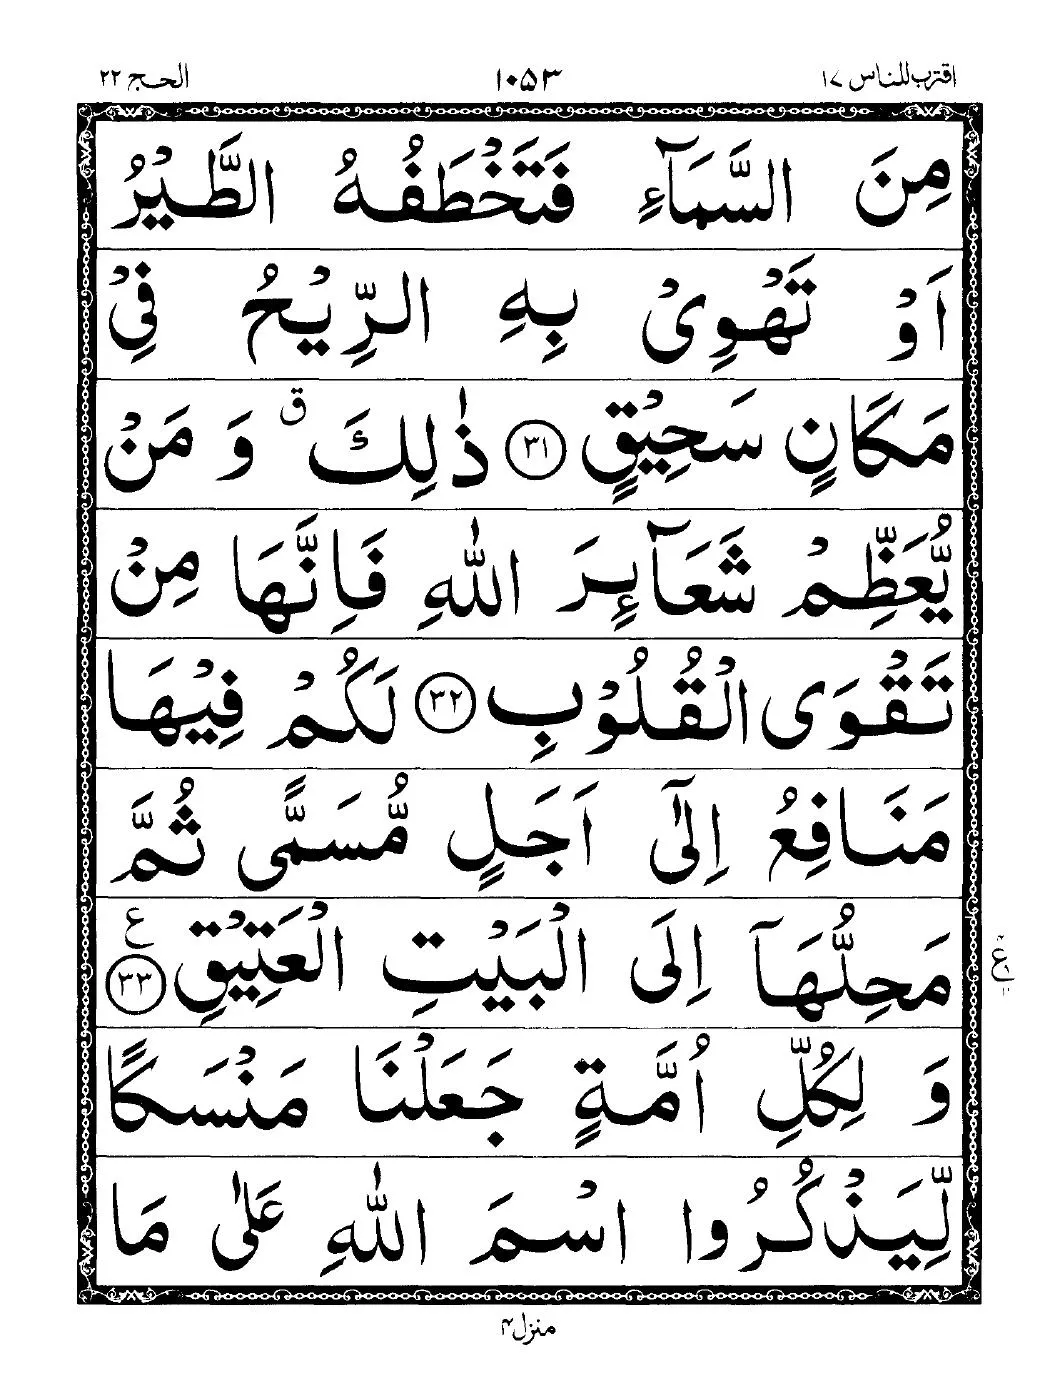 اقترب للناس ١٧ ١٠٥٣ الحج ٢٢
مِنَ السَّمَآءِ فَتَخْطَفُهُ الطَّيْرُ
اَوْ تَهْوِيْ بِهِ الرِّيْحُ فِيْ
مَكَانٍ سَحِيْقٍ ٣١ ذٰلِكَ ۗ وَ مَنْ
يُّعَظِّمْ شَعَآئِرَ اللّٰهِ فَاِنَّهَا مِنْ
تَقْوَى الْقُلُوْبِ ٣٢ لَكُمْ فِيْهَا
مَنَافِعُ اِلٰٓى اَجَلٍ مُّسَمًّى ثُمَّ
مَحِلُّهَآ اِلَى الْبَيْتِ الْعَتِيْقِ ٣٣ ع
وَ لِكُلِّ اُمَّةٍ جَعَلْنَا مَنْسَكًا
لِّيَذْكُرُوا اسْمَ اللّٰهِ عَلٰى مَا
منزل ۴